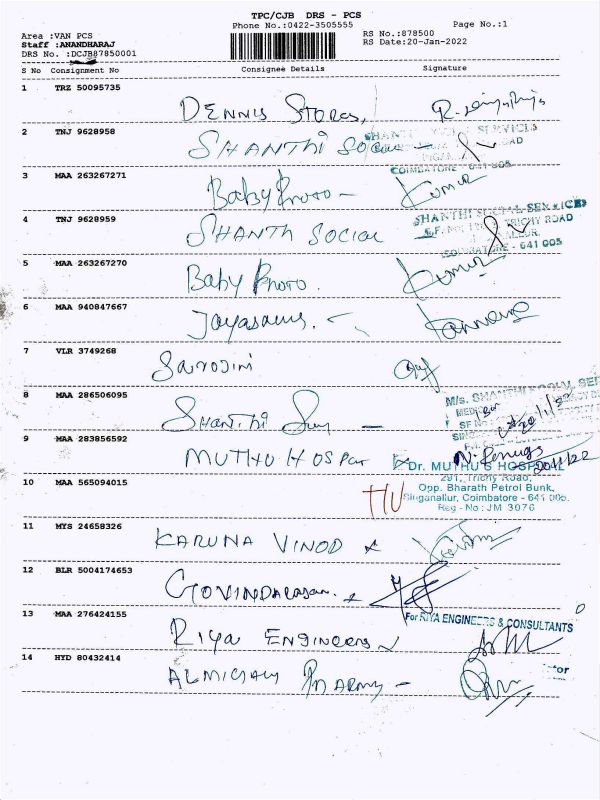 TPC/CJB DRS - PCS
Phone No.:0422-3505555
Page No.:1
Area :VAN PCS
RS No.:878500
Staff :ANANDHARAJ
RS Date:20-Jan-2022
DRS No. :DCJB87850001
S No Consignment No Consignee Details Signature
1 TRZ 50095735
DENNIS STORES,
2 TNJ 9628958
SHANTHI SOCIAL
COIMBATORE - 641 005
3 MAA 263267271
Baby Photo - Kumar
4 TNJ 9628959
SHANTHI SOCIAL SERVICES
TRICHY ROAD
SHANTHI SOCIAL
COIMBATORE - 641 005
5 MAA 263267270
Baby Photo. Kumar
6 MAA 940847667
7 VLR 3749268
Sarojini
8 MAA 286506095
M/s. SHANTHI SOCIAL SER
SHANTHI
9 MAA 283856592
MUTHU HOSPat
Dr. MUTHU'S HOSPITAL
20/1/22
10 MAA 565094015
291, Trichy Road,
Opp. Bharath Petrol Bunk,
Singanallur, Coimbatore - 641 005.
Reg - No : JM 3076
11 MYS 24658326
KARUNA VINOD
12 BLR 5004174653
GOVINDARASAN.
13 MAA 276424155
For RIYA ENGINEERS & CONSULTANTS
RIYA ENGINEERS
14 HYD 80432414